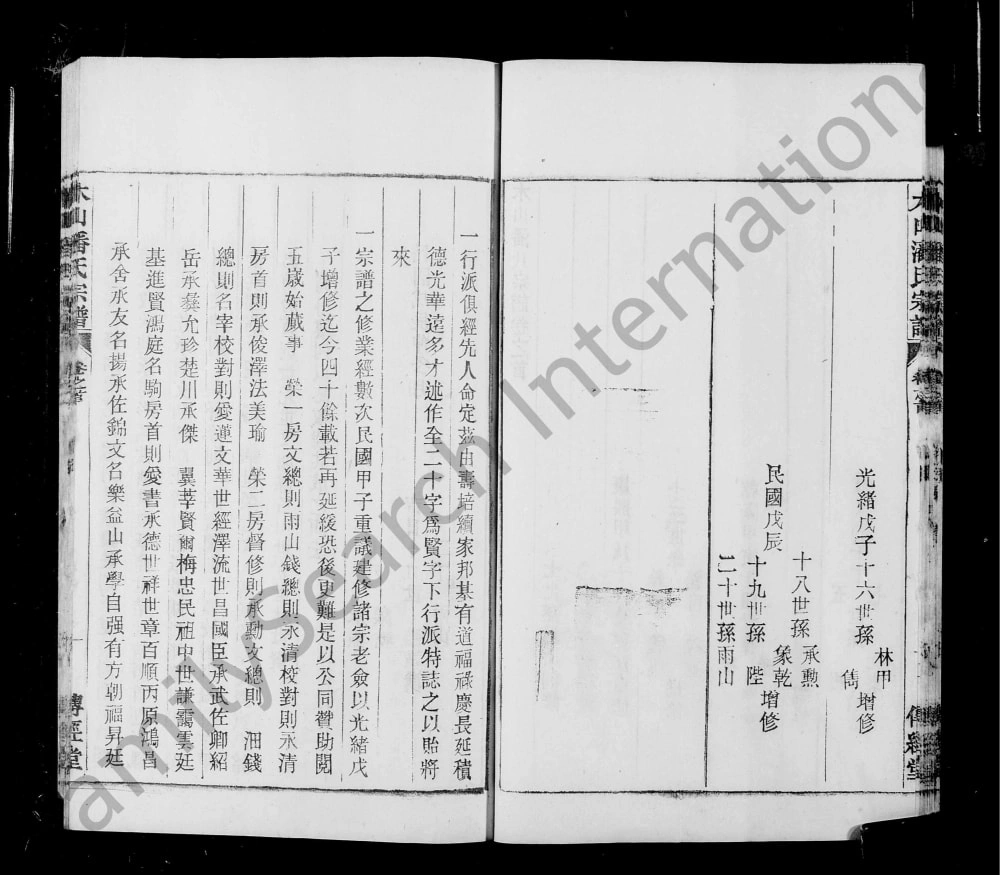 木山潘氏宗譜
卷之首
傳經堂
光緒戊子十六世孫
林甲
儁
增修
十八世孫
承勲
象乾
民國戊辰
十九世孫
陛
增修
二十世孫雨山
一行派俱經先人命定茲由壽培續家邦基有道福祿慶長延積
德光華遠多才述作全二十字爲賢字下行派特誌之以貽將
來
一宗譜之修業經數次民國甲子重議建修諸宗老僉以光緒戊
子增修迄今四十餘載若再延緩恐後更難是以公同贊助閱
五歲始蕆事 榮一房文總則雨山錢總則永清校對則永清
房首則承俊澤法美瑜 榮二房督修則承勳文總則 沺錢
總則名宰校對則愛蓮文華世經澤流世昌國臣承武佐卿紹
岳承彝允珍楚川承傑 翼莘賢爾梅忠民祖中世謙靄雲廷
基進賢鴻庭名駒房首則愛書承德世祥世章百順丙原鴻昌
承舍承友名揚承佐錦文名樂益山承學自强有方朝福昇廷
木山潘氏宗譜
卷之首
傳經堂
FamilySearch International